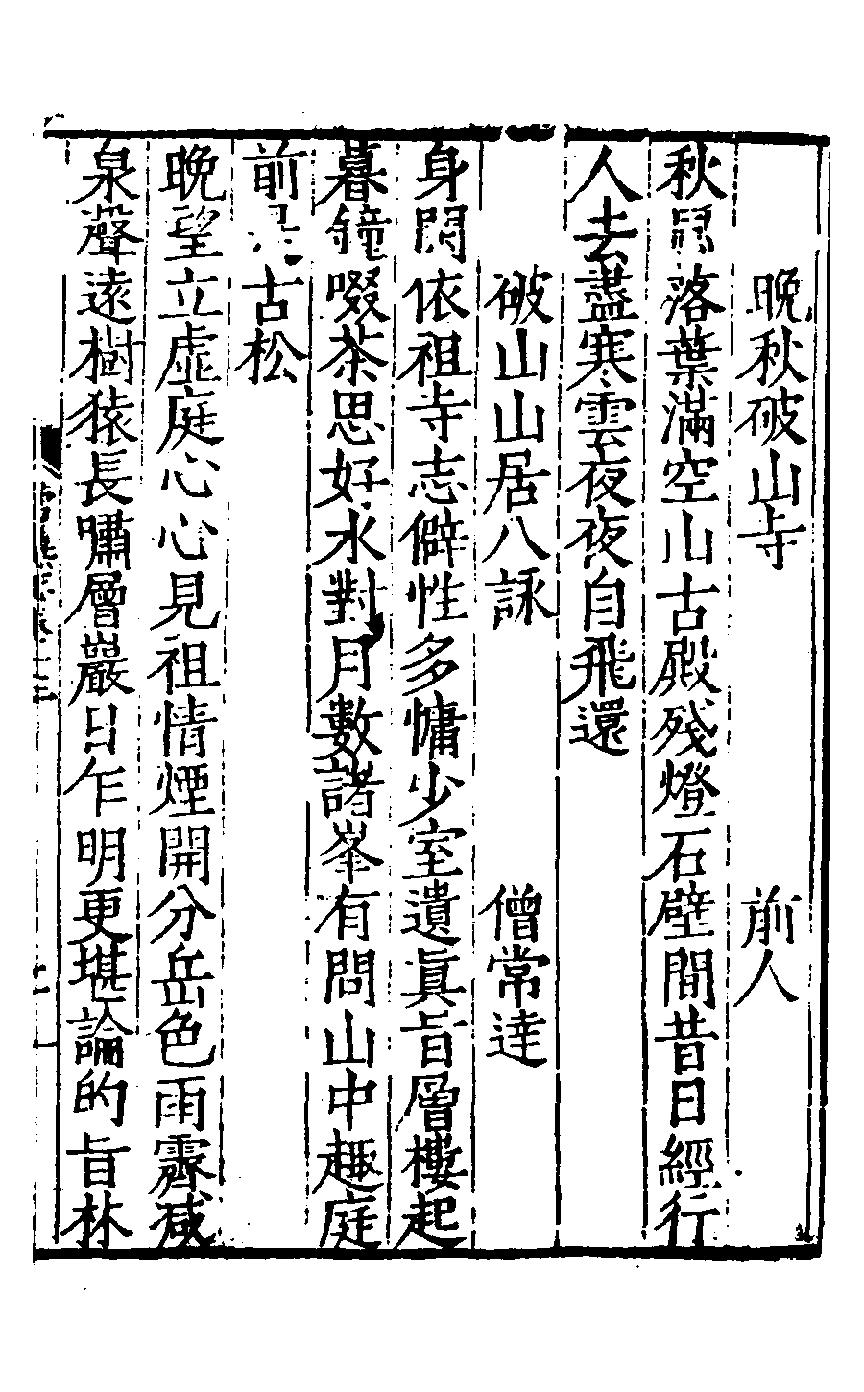 晚秋破山寺　前人
秋風落葉滿空山古殿殘燈石壁間昔日經行
人去盡寒雲夜夜自飛還
破山山居八詠　僧常達
身閑依祖寺志僻性多慵少室遺眞旨層樓起
暮鐘啜茶思好水對月數諸峯有問山中趣庭
前是古松
晚望立虛庭心心見祖情煙開分岳色雨霽減
泉聲遠樹猿長嘯層巖日乍明更堪論的旨林
志卷十三